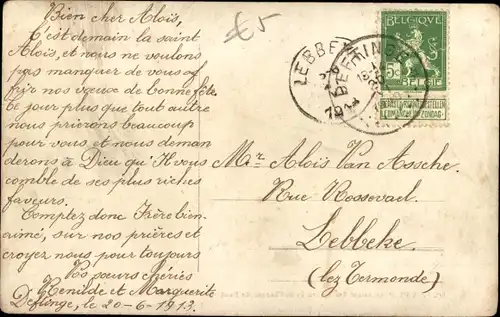 Bien cher Aloïs,
C'est demain la saint
Aloïs, et nous ne voulons
pas manquer de vous of
frir nos vœux de bonne fête
Ce jour plus que tout autre
nous prierons beaucoup
pour vous et nous deman
derons à Dieu qu'Il vous
comble de ses plus riches
faveurs.
Comptez donc Frère bien-
aimé, sur nos prières et
croyez nous pour toujours
Vos sœurs chéries
Renilde et Marguerite
Deftinge, le 20-6-1913.
€5
LEBBE
DEFTINGE
BELGIQUE
5c
BELGIË
Mr. Aloïs Van Assche.
Rue Rossevael.
Lebbeke.
(lez Termonde)